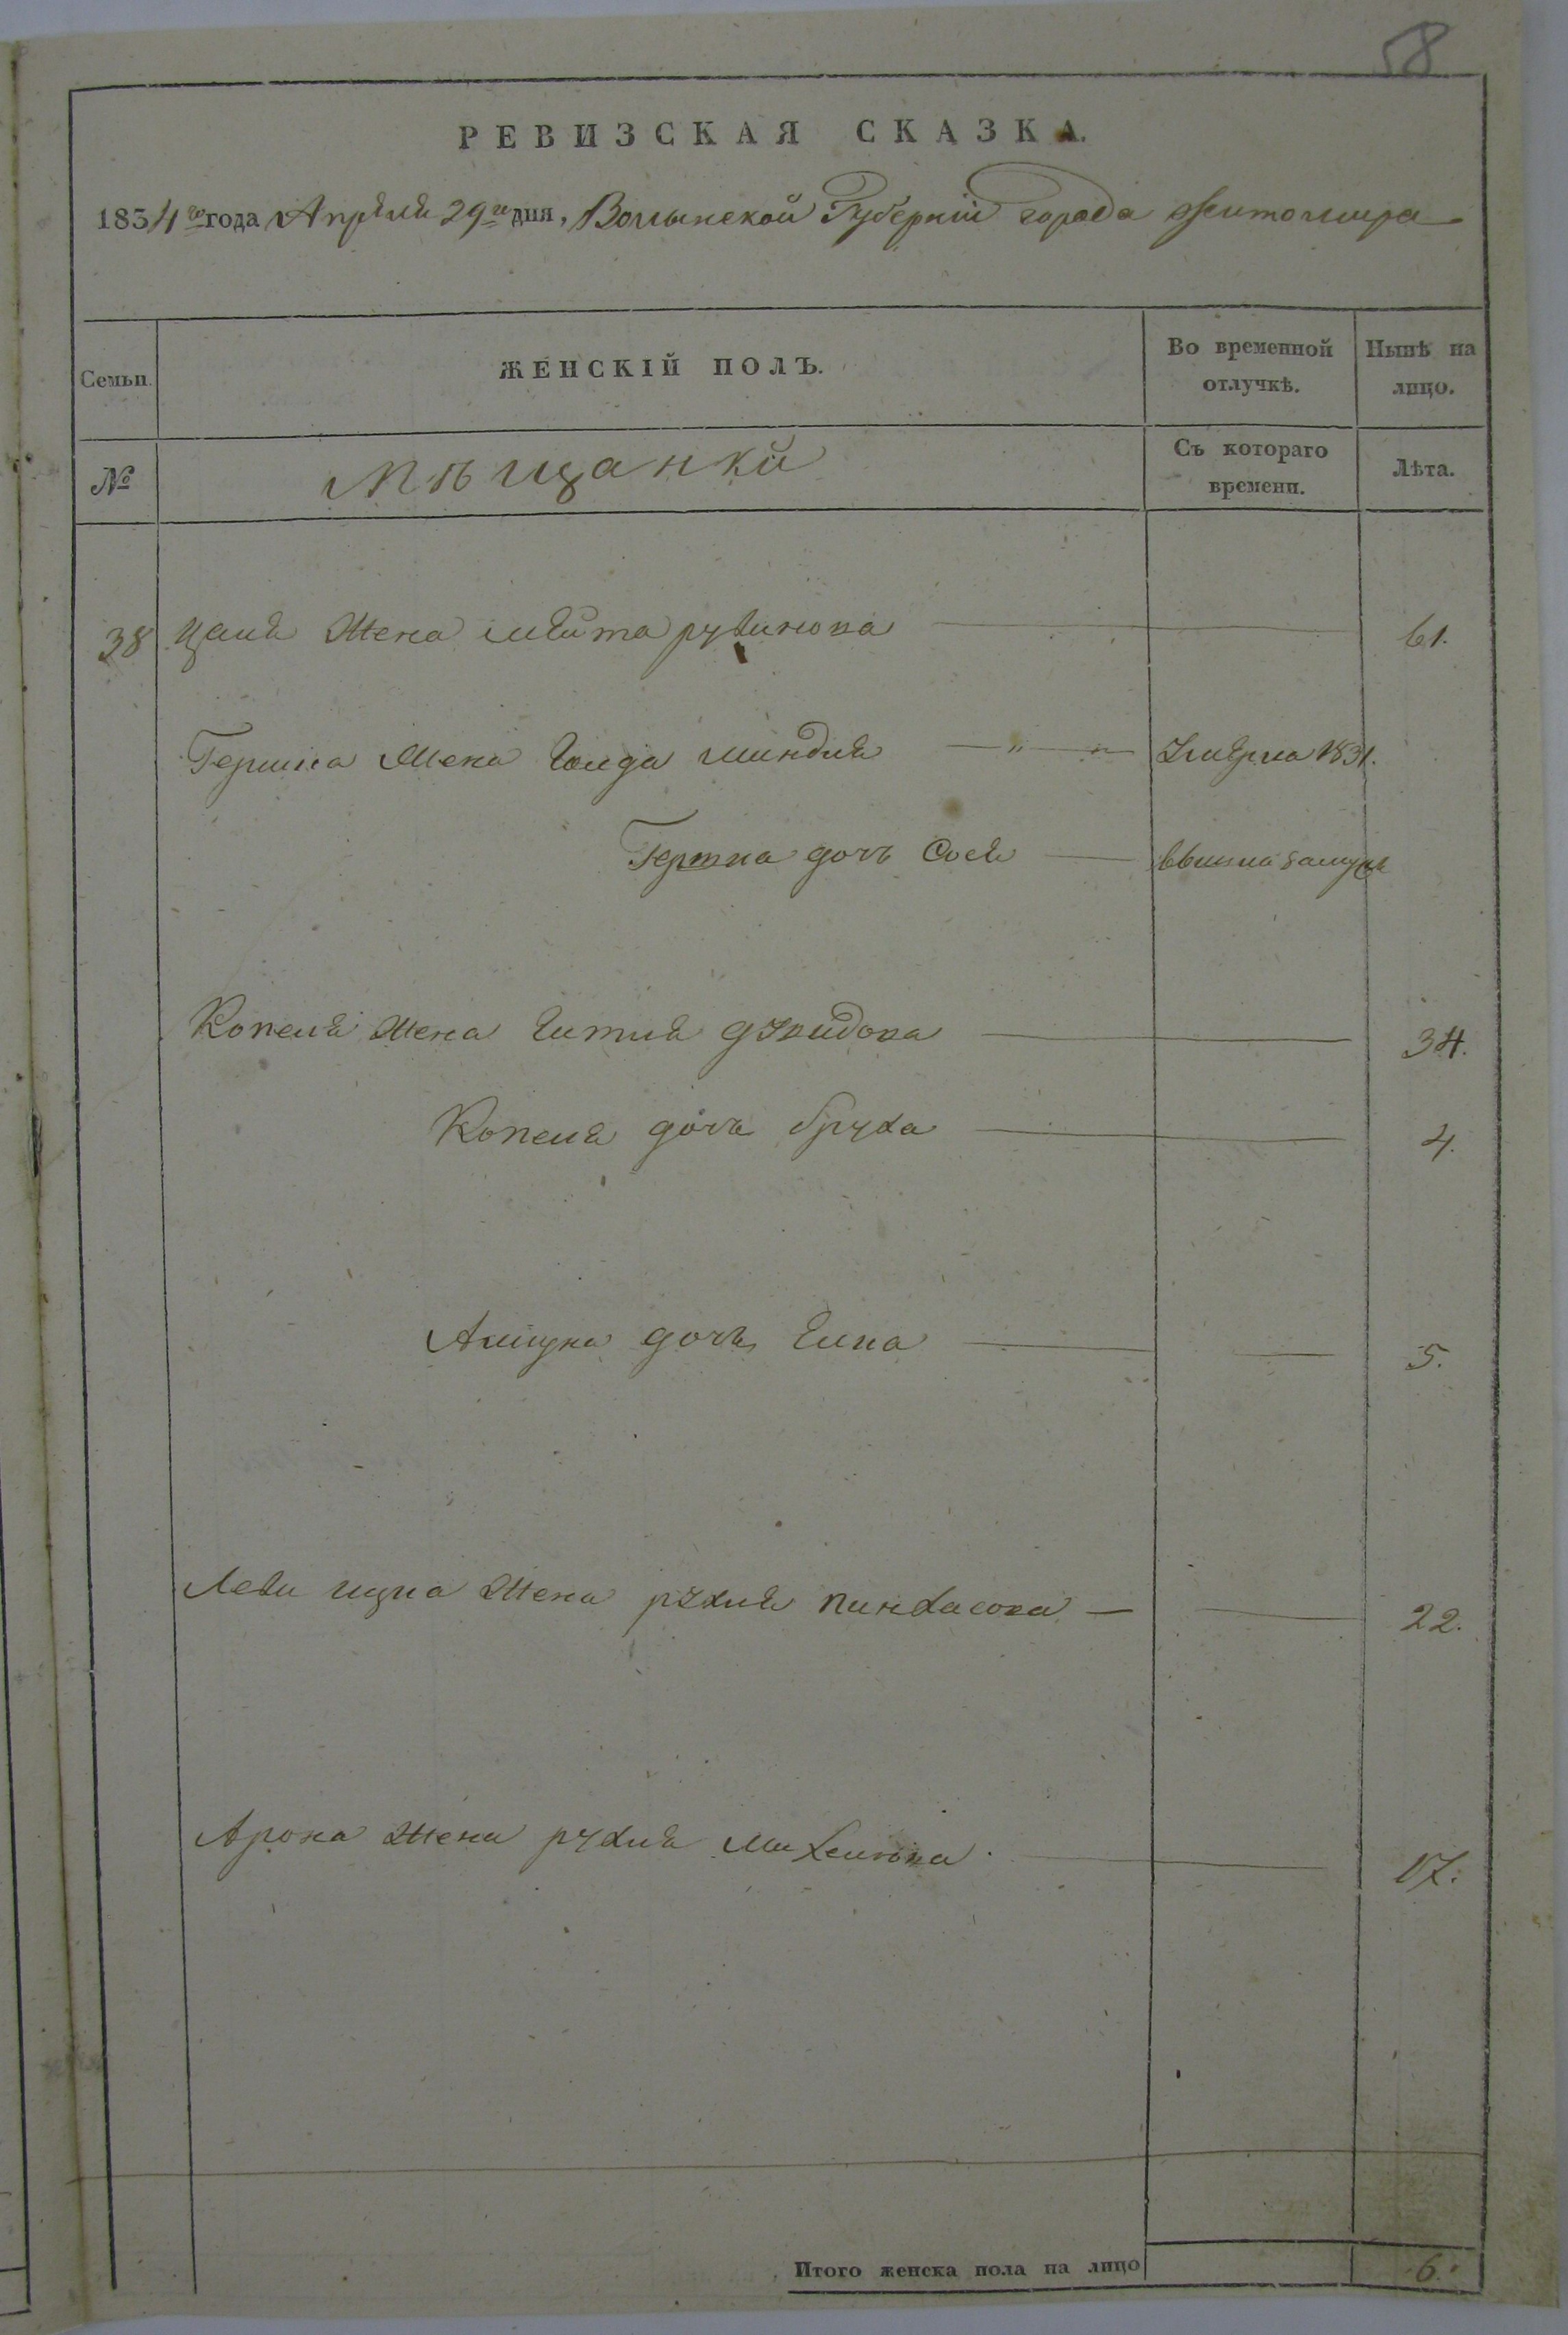 58
РЕВИЗСКАЯ СКАЗКА.
1834го года Апреля 29го дня, Волынской Губерніи города Житомира
Семьи. ЖЕНСКІЙ ПОЛЪ. Во временной отлучкѣ. Нынѣ на лицо.
№ Мѣщанки Съ котораго времени. Лѣта.
38 жена рувинова 61.
Гершка жена Голда миндля умерла 1831.
Гершка дочь Сося вышла замужъ
Копеля жена Гитля давидова 34.
Копеля дочь бруха 4.
дочь 5.
Леви ицка жена рухля пинхасова 22.
Арона жена рухля Михелюва 17.
Итого женска пола на лицо 6.